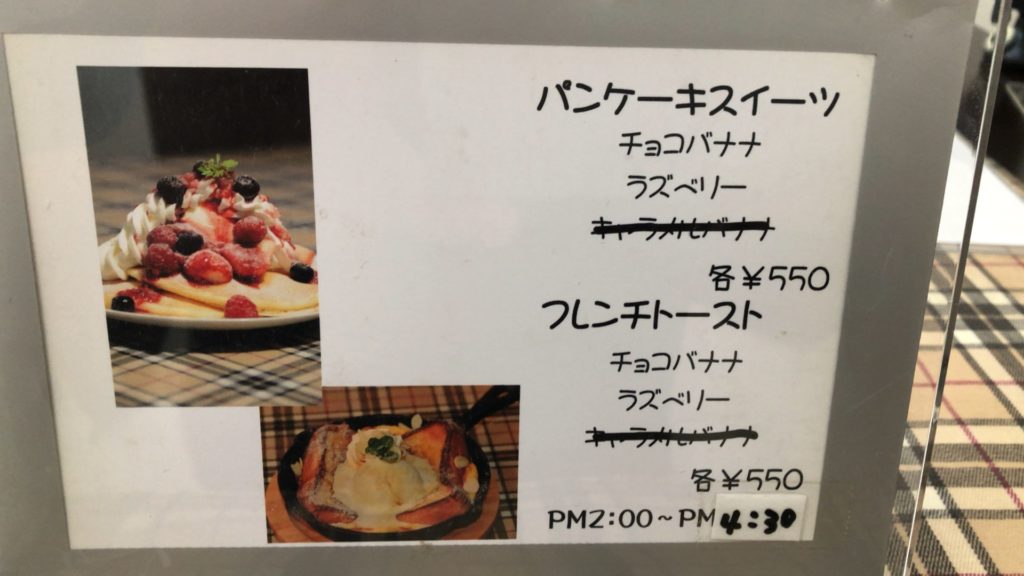 パンケーキスイーツ
チョコバナナ
ラズベリー
キャラメルバナナ
各￥550
フレンチトースト
チョコバナナ
ラズベリー
キャラメルバナナ
各￥550
PM2:00～PM4:30